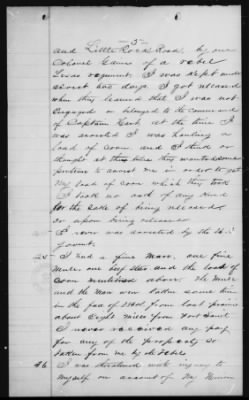 5
and Little Rock Road, by one
Colonel Gaines of a rebel
Texas regiment. I was kept under
arrest two days. I got released
when they learned that I was not
engaged or belonged to the command
of Captain Hart at the time I
was arrested I was hauling a
load of corn, and I think or
thought at this time they wanted some
pretense to arrest me in order to get
My load of corn which they took
I took no oath of any kind
for the sake of being released,
or upon being released
I never was arrested by the U.S.
Government.
25 I had a fine Mare, one fine
Mule, one beef Steer and the load of
corn mentioned above. The Mule
and the Mare were taken some time
in the fall of 1862 from lost prairie
about eight miles from Fort Smith
I never received any pay
for any of the property so
taken from me by the rebels
26 I was threatened with injury to
Myself on account of My Union